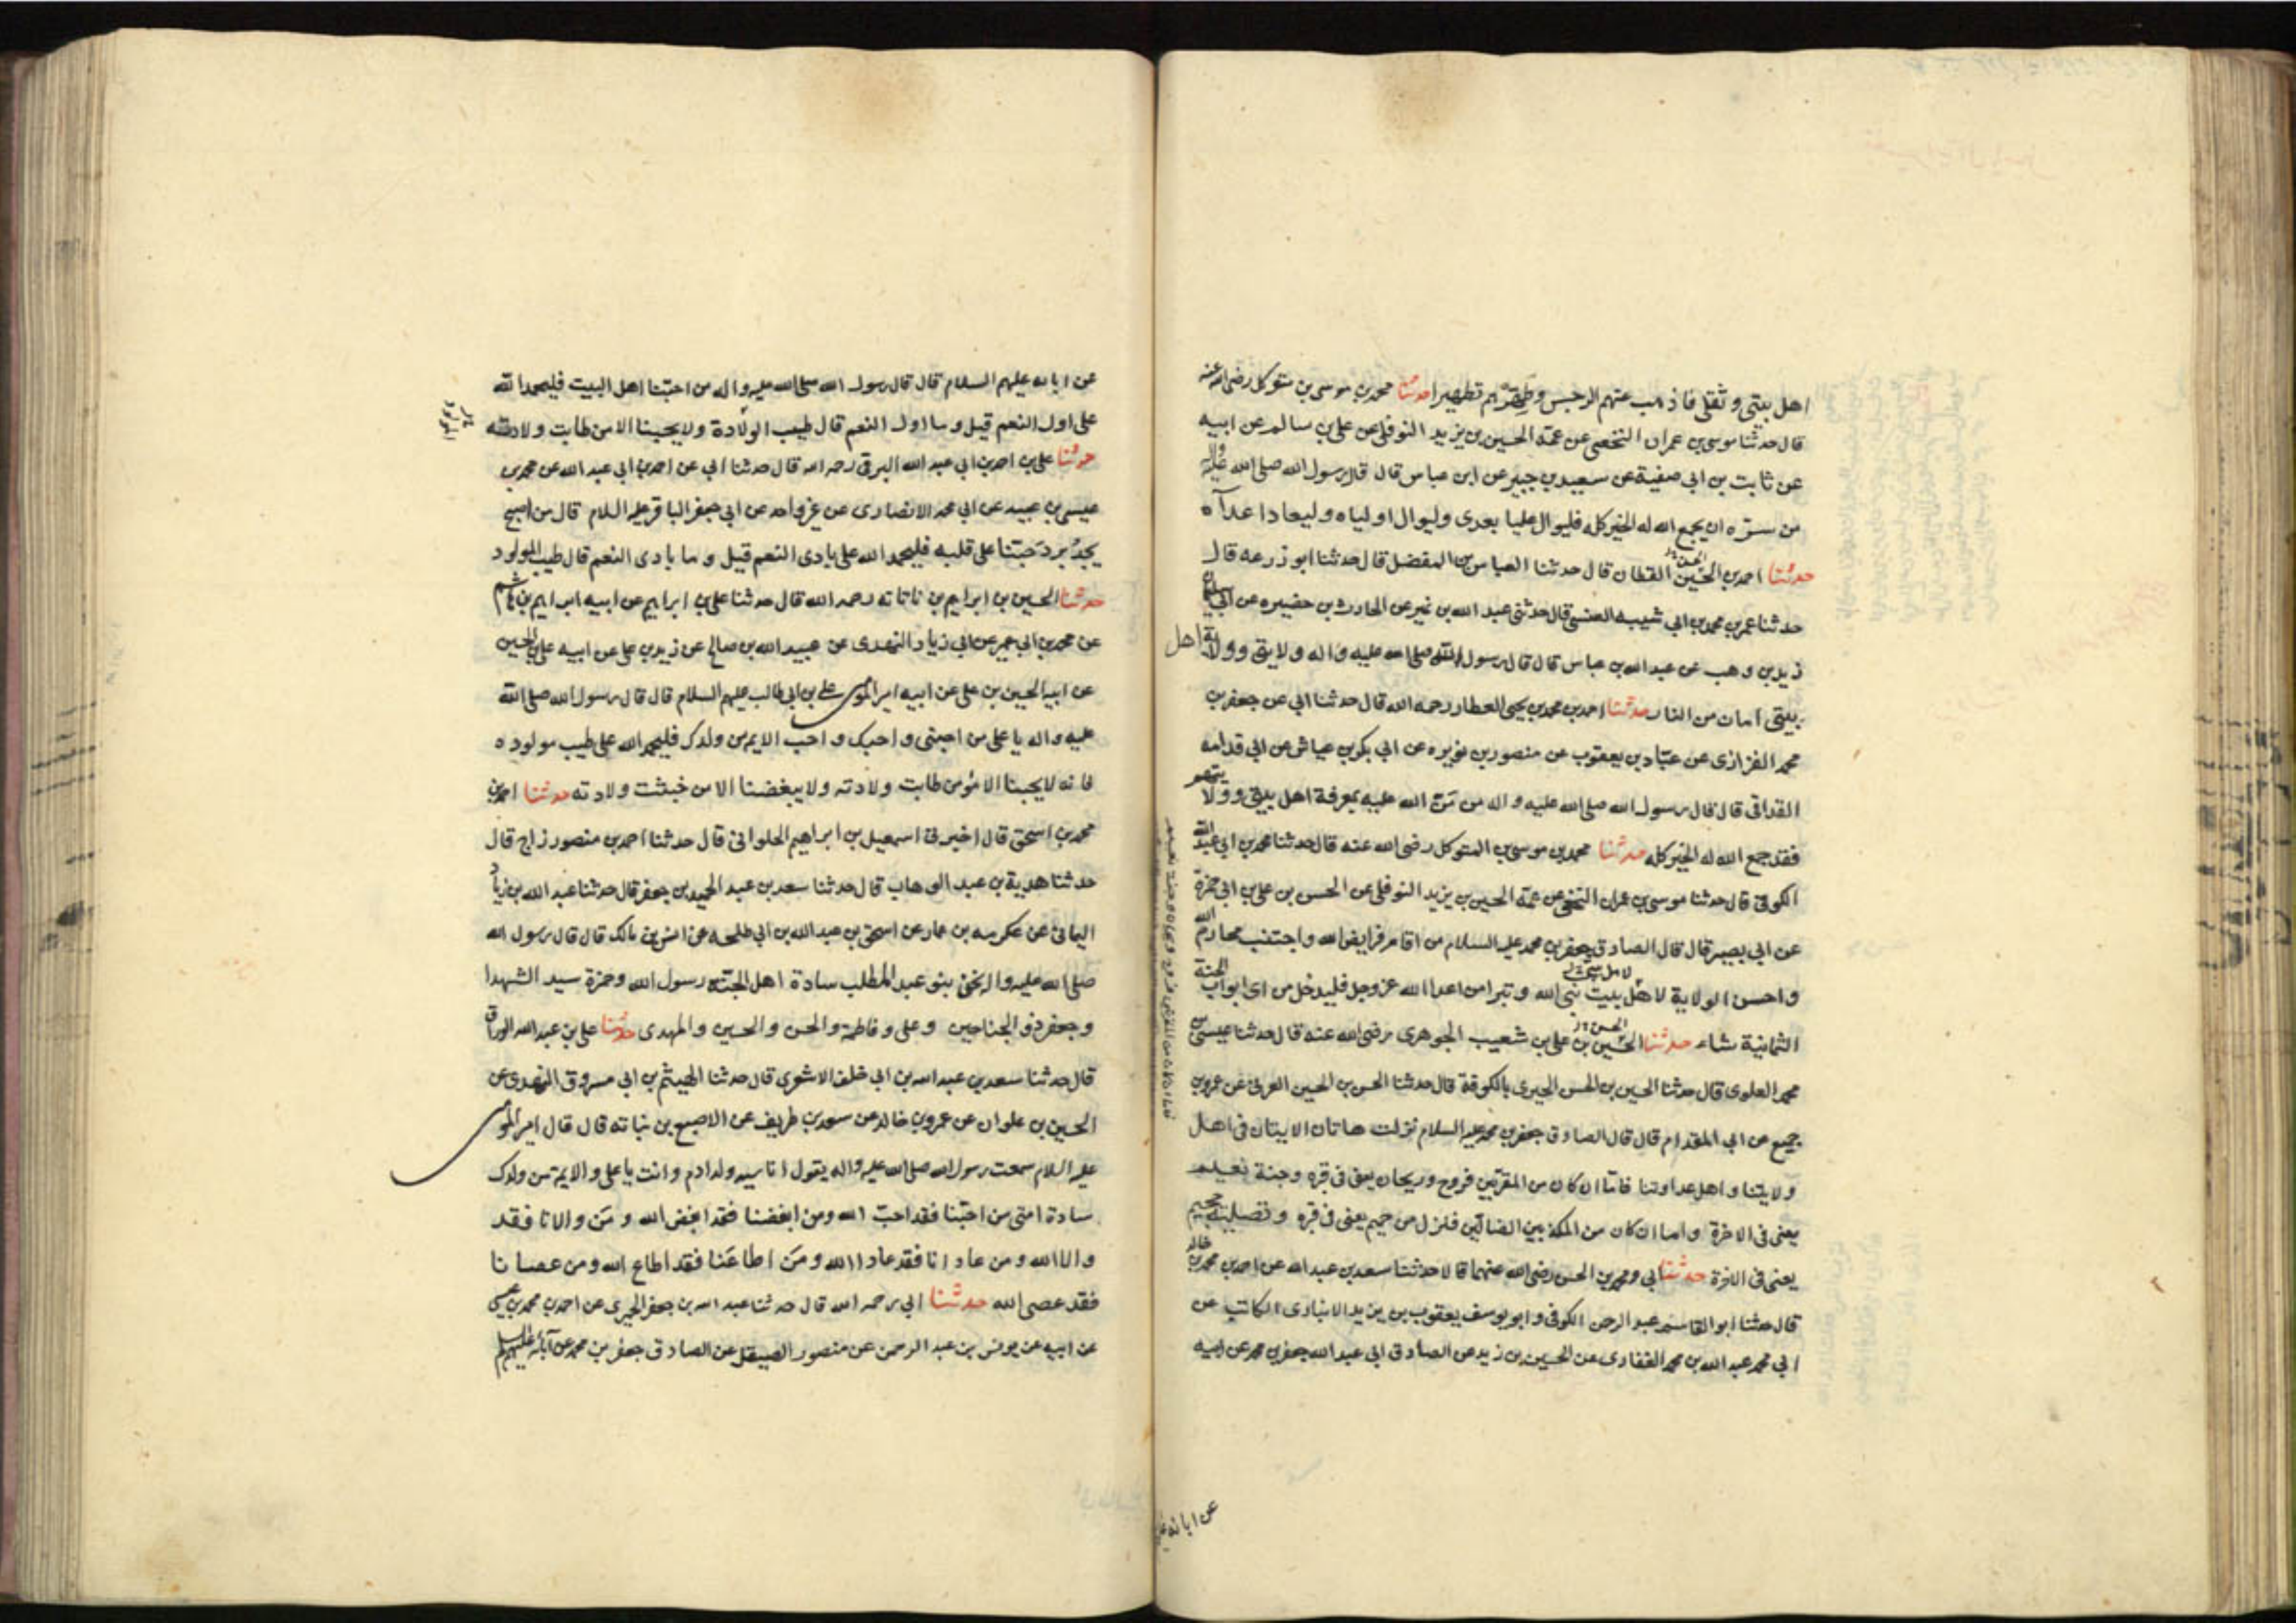 اهل بيتي و ثقلي فاذهب عنهم الرجس وطهرهم تطهيرا حدثنا محمد بن موسى بن متوكل رضى الله عنه
قال حدثنا موسى بن عمران النخعى عن عمه الحسين بن يزيد النوفلى عن على بن سالم عن ابيه
عن ثابت بن ابى صفية عن سعيد بن جبير عن ابن عباس قال قال رسول الله صلى الله عليه واله
من سره ان يجمع الله له الخير كله فليوال عليا بعدى وليوال اولياه وليعاد اعدآه
حدثنا احمد بن الحسين القطان قال حدثنا العباس بن المفضل قال حدثنا ابو زرعه قال
الحسن
حدثنا عمر بن محمد بن ابى شيبه العنسى قال حدثنى عبد الله بن نمير عن الحارث بن حضيره عن ابى سليمان
زيد بن وهب عن عبد الله بن عباس قال قال رسول الله صلى الله عليه واله ولايتى وولاية اهل
بيتى امان من النار حدثنا احمد بن محمد بن يحيى العطار رحمه الله قال حدثنا ابى عن جعفر بن
محمد الفزازى عن عباد بن يعقوب عن منصور بن نويره عن ابى بكر بن عياش عن ابى قدامه
الفدانى قال قال رسول الله صلى الله عليه واله من من الله عليه بمعرفة اهل بيتى وولايتهم
فقد جمع الله له الخير كله حدثنا محمد بن موسى بن المتوكل رضى الله عنه قال حدثنا محمد بن ابى عبد الله
الكوفى قال حدثنا موسى بن عمران النخعى عن عمه الحسين بن يزيد النوفلى عن الحسن بن على بن ابى حمزة
عن ابى بصير قال قال الصادق جعفر بن محمد عليه السلام من اقام فرايض الله واجتنب محارم الله
واحسن الولاية لاهل بيت نبى الله وتبرا من اعدا الله عز وجل فليدخل من اى ابواب الجنة
الثمانية شاء حدثنا الحسين بن على بن شعيب الجوهرى رضى الله عنه قال حدثنا عيسى بن
الحسن
محمد العلوى قال حدثنا الحسين بن الحسن الحيرى بالكوفة قال حدثنا الحسن بن الحسين العرنى عن عمرو بن
جميع عن ابى المقدام قال قال الصادق جعفر بن محمد عليه السلام نزلت هاتان الايتان فى اهل
ولايتنا واهل عداوتنا فاما ان كان من المقربين فروح وريحان يعنى فى قبره وجنة نعيم
يعنى فى الاخرة واما ان كان من المكذبين الضالين فنزل من حميم يعنى فى قبره وتصلية جحيم
يعنى فى الاخرة حدثنا ابى ومحمد بن الحسن رضى الله عنهما قالا حدثنا سعد بن عبد الله عن احمد بن محمد بن خالد
قال حدثنا ابو القاسم عبد الرحمن الكوفى وابو يوسف يعقوب بن يزيد الانبارى الكاتب عن
ابى محمد عبد الله بن محمد الغفارى عن الحسين بن زيد عن الصادق ابى عبد الله جعفر بن محمد عن ابيه
عن ابائه
عن ابائه عليهم السلام قال قال رسول الله صلى الله عليه واله من احبنا اهل البيت فليحمد الله
على اول النعم قيل وما اول النعم قال طيب الولادة ولا يحبنا الا من طابت ولادته
حدثنا على بن احمد بن ابى عبد الله البرقى رحمه الله قال حدثنا ابى عن احمد بن ابى عبد الله عن محمد بن
عيسى بن عبيد عن ابى محمد الانصارى عن غير واحد عن ابى جعفر الباقر عليه السلام قال من اصبح
يجد برد حبنا على قلبه فليحمد الله على بادى النعم قيل وما بادى النعم قال طيب المولود
حدثنا الحسين بن ابراهيم بن ناتانه رحمه الله قال حدثنا على بن ابراهيم عن ابيه ابراهيم بن هاشم
عن محمد بن ابى عمير عن ابى زياد النهدى عن عبيد الله بن صالح عن زيد بن على عن ابيه على بن الحسين
عن ابيه الحسين بن على عن ابيه امير المومنين على بن ابى طالب عليهم السلام قال قال رسول الله صلى الله
عليه واله يا على من احبنى واحبك واحب الايمه من ولدك فليحمد الله على طيب مولوده
فانه لا يحبنا الا مؤمن طابت ولادته ولا يبغضنا الا من خبثت ولادته حدثنا احمد بن
محمد بن اسحق قال اخبرنى اسمعيل بن ابراهيم الحلوانى قال حدثنا احمد بن منصور زاج قال
حدثنا هدية بن عبد الوهاب قال حدثنا سعد بن عبد الحميد بن جعفر قال حدثنا عبد الله بن زياد
اليمانى عن عكرمه بن عمار عن اسحق بن عبد الله بن ابى طلحه عن انس بن مالك قال قال رسول الله
صلى الله عليه واله نحن بنو عبد المطلب سادة اهل الجنة رسول الله وحمزة سيد الشهدا
وجعفر ذو الجناحين وعلى وفاطمة والحسن والحسين والمهدى حدثنا على بن عبد الله الوراق
قال حدثنا سعد بن عبد الله بن ابى خلف الاشعرى قال حدثنا الهيثم بن ابى مسروق النهدى عن
الحسين بن علوان عن عمرو بن خالد عن سعد بن طريف عن الاصبغ بن نباته قال قال امير المومنين
عليه السلام سمعت رسول الله صلى الله عليه واله يقول انا سيد ولد ادم وانت يا على والايمة من ولدك
سادة امتى من احبنا فقد احب الله ومن ابغضنا فقد ابغض الله ومن والانا فقد
والا الله ومن عادانا فقد عادا الله ومن اطاعنا فقد اطاع الله ومن عصانا
فقد عصى الله حدثنا ابى رحمه الله قال حدثنا عبد الله بن جعفر الحميرى عن احمد بن محمد بن عيسى
عن ابيه عن يونس بن عبد الرحمن عن منصور الصيقل عن الصادق جعفر بن محمد عن آبائه عليهم السلام